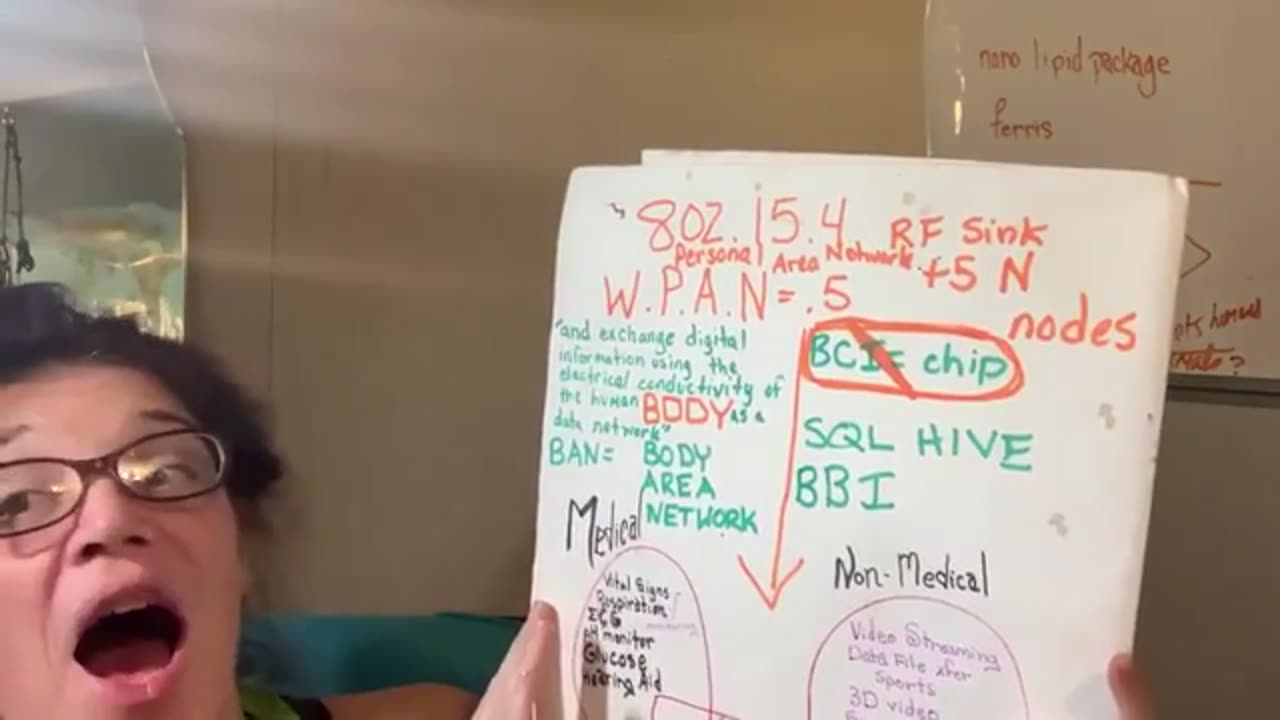 nano lipid package
ferris
802.15.4 RF Sink
Personal Area Network +5 N
W.P.A.N = .5
nodes
"and exchange digital
information using the
electrical conductivity of
the human BODY as a
data network"
BAN = BODY
AREA
NETWORK
BCI = chip
SQL HIVE
BBI
Medical
Vital Signs
Respiration
ECG
pH monitor
Glucose
Hearing Aid
Non-Medical
Video Streaming
Data File xfer
Sports
3D video